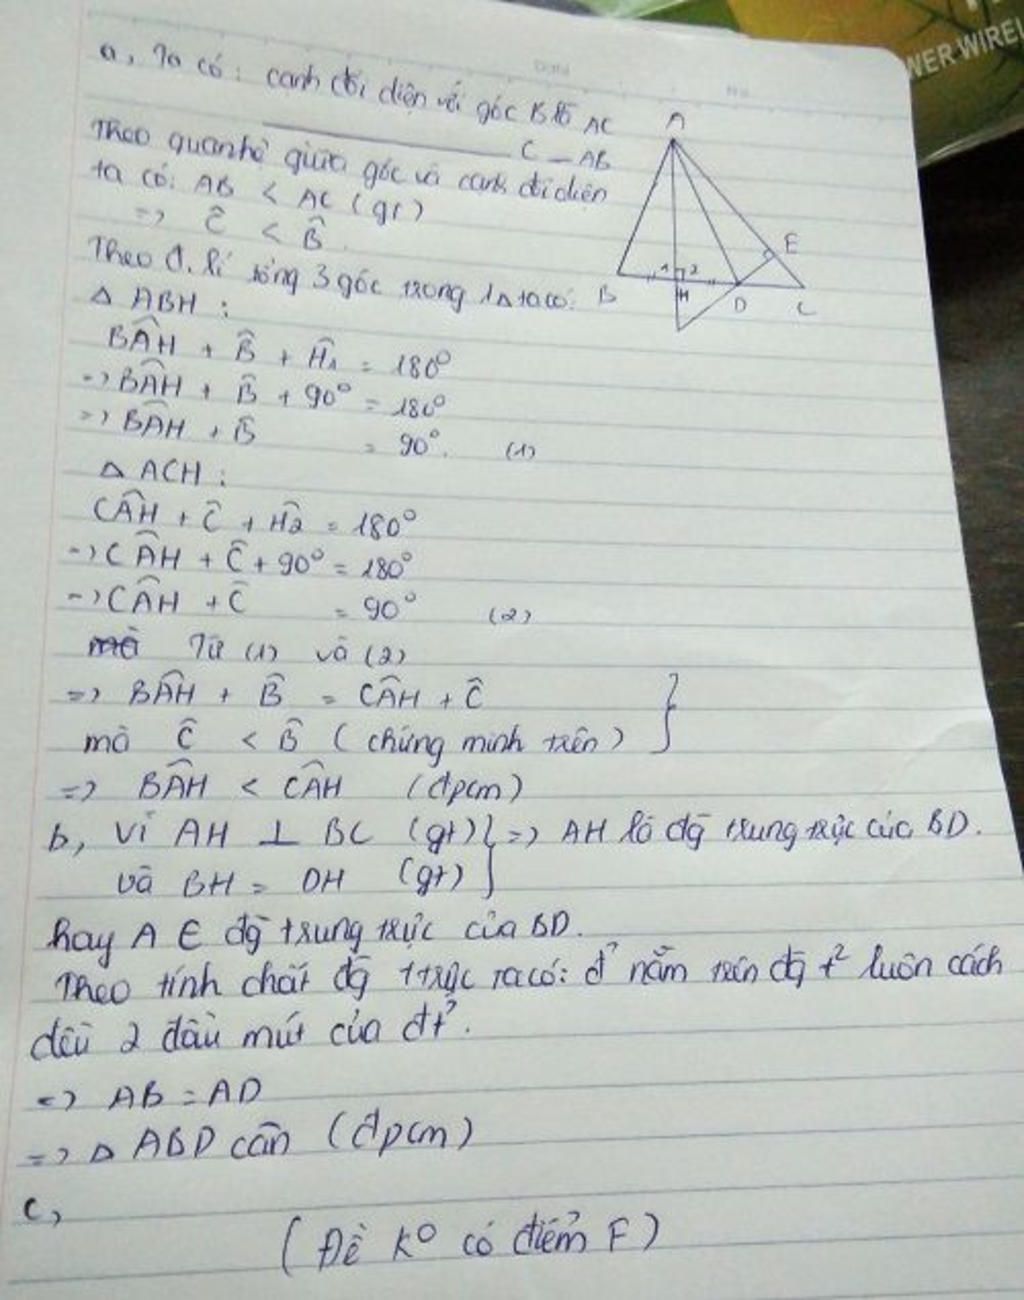 a, Ta có: cạnh đối diện với góc B là AC
C — AB
Theo quan hệ giữa góc và cạnh đối diện
ta có: AB < AC (gt)
=> Ĉ < B̂.
Theo đ.lí tổng 3 góc trong 1Δ ta có:
Δ ABH :
BÂH + B̂ + Ĥ1 = 180°
=> BÂH + B̂ + 90° = 180°
=> BÂH + B̂ = 90°. (1)
Δ ACH :
CÂH + Ĉ + Ĥ2 = 180°
=> CÂH + Ĉ + 90° = 180°
=> CÂH + Ĉ = 90° (2)
mà Từ (1) và (2)
=> BÂH + B̂ = CÂH + Ĉ }
mà Ĉ < B̂ (chứng minh trên)
=> BÂH < CÂH (đpcm)
b, Vì AH ⊥ BC (gt) } => AH là đg trung trực của BD.
và BH = DH (gt)
hay A ∈ đg trung trực của BD.
Theo tính chất đg ttrực ta có: đ' nằm trên đg t² luôn cách
đều 2 đầu mút của đt'.
=> AB = AD
=> Δ ABD cân (đpcm)
c,
(Đề k° có điểm F)
A
E
1 2
B H D C
WER WIREL